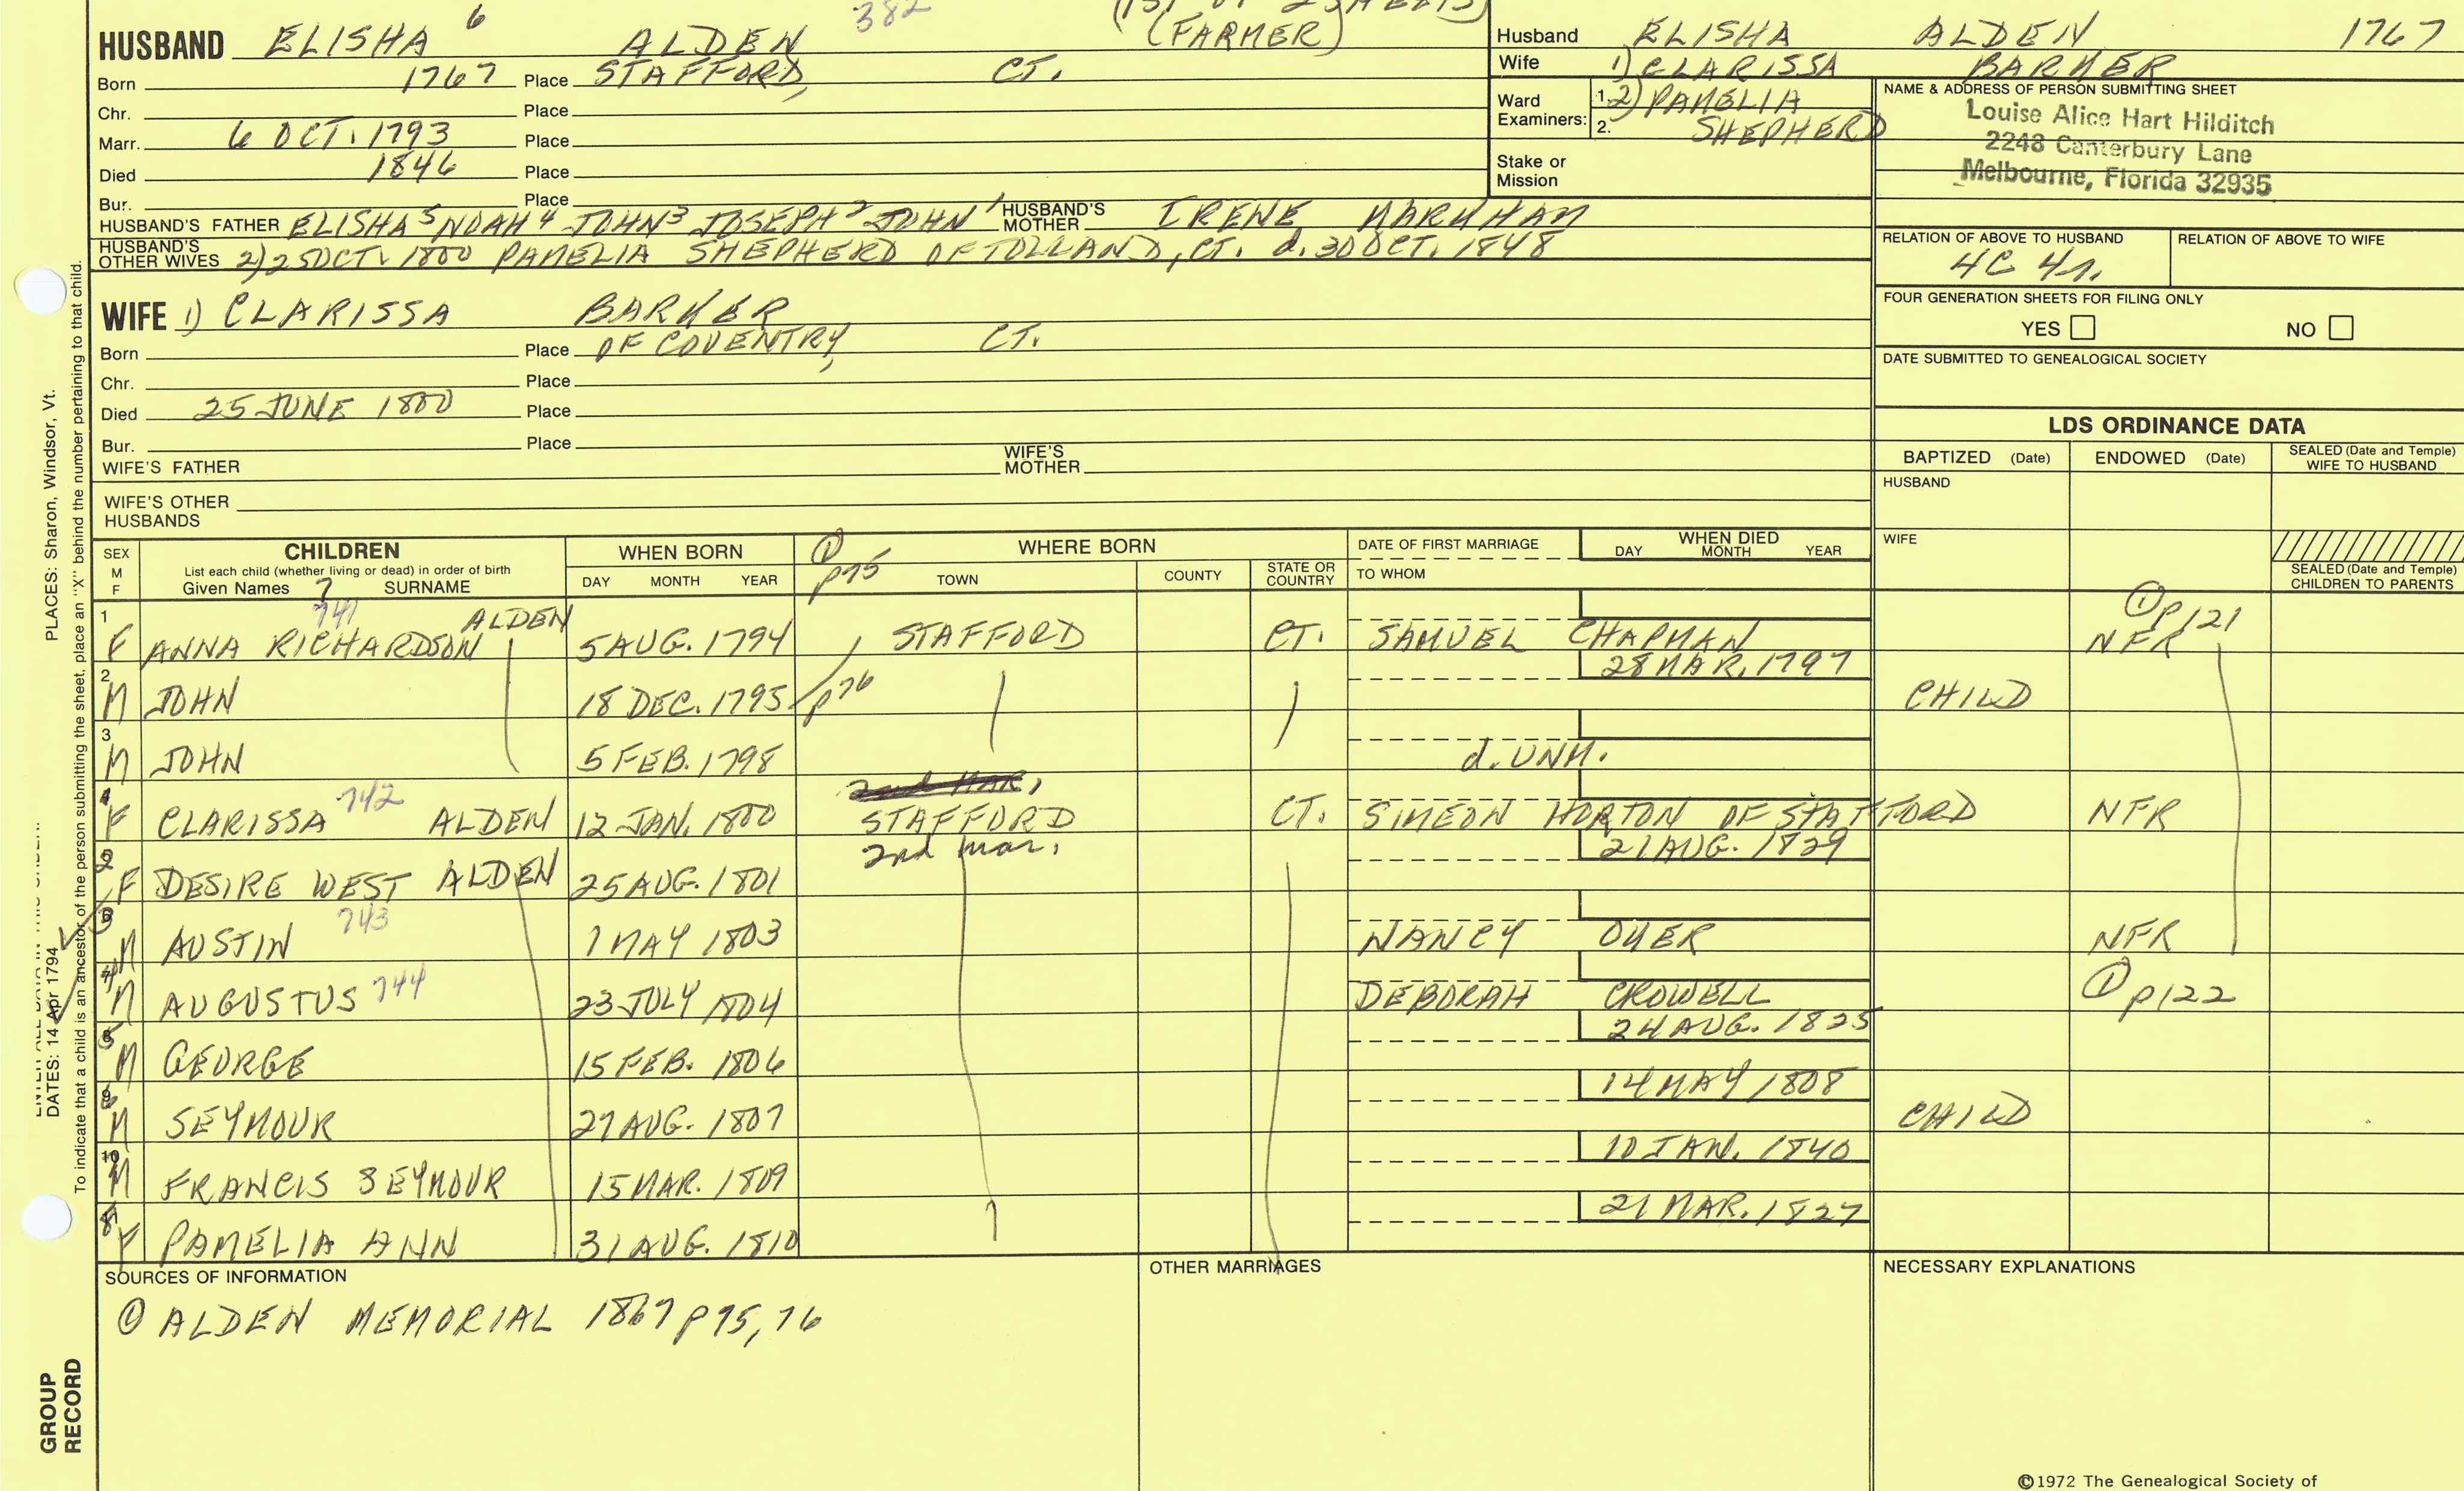 382
(FARMER)
HUSBAND ELISHA 6 ALDEN
Born 1767 Place STAFFORD, CT.
Chr. Place
Marr. 6 OCT. 1793 Place
Died 1846 Place
Bur. Place
HUSBAND'S FATHER ELISHA 5 NOAH 4 JOHN 3 JOSEPH 2 JOHN 1 HUSBAND'S MOTHER IRENE MARKHAM
HUSBAND'S OTHER WIVES 2) 25 OCT. 1800 PAMELIA SHEPHERD OF TOLLAND, CT. d. 30 OCT. 1848
Husband ELISHA ALDEN 1767
Wife 1) CLARISSA BARKER
Ward Examiners: 1. 2) PAMELIA
2. SHEPHERD
Stake or Mission
NAME & ADDRESS OF PERSON SUBMITTING SHEET
Louise Alice Hart Hilditch
2248 Canterbury Lane
Melbourne, Florida 32935
RELATION OF ABOVE TO HUSBAND RELATION OF ABOVE TO WIFE
4C 4r.
FOUR GENERATION SHEETS FOR FILING ONLY
YES NO
DATE SUBMITTED TO GENEALOGICAL SOCIETY
WIFE 1) CLARISSA BARKER
Born Place OF COVENTRY, CT.
Chr. Place
Died 25 JUNE 1800 Place
Bur. Place
WIFE'S FATHER WIFE'S MOTHER
WIFE'S OTHER HUSBANDS
LDS ORDINANCE DATA
BAPTIZED (Date) ENDOWED (Date) SEALED (Date and Temple) WIFE TO HUSBAND
HUSBAND
WIFE
SEALED (Date and Temple) CHILDREN TO PARENTS
SEX M F CHILDREN WHEN BORN ① p75 WHERE BORN DATE OF FIRST MARRIAGE WHEN DIED
List each child (whether living or dead) in order of birth
Given Names 7 SURNAME DAY MONTH YEAR TOWN COUNTY STATE OR COUNTRY TO WHOM DAY MONTH YEAR
1 F ANNA RICHARDSON 741 ALDEN 5 AUG. 1794 STAFFORD CT. SAMUEL CHAPMAN NFR ① p121
2 M JOHN 18 DEC. 1795 p76 28 MAR. 1797 CHILD
3 M JOHN 5 FEB. 1798 d. UNM.
2nd MAR.
4 F CLARISSA 742 ALDEN 12 JAN. 1800 STAFFORD CT. SIMEON HORTON OF STAFFORD NFR
2nd mar.
2 F DESIRE WEST ALDEN 25 AUG. 1801 21 AUG. 1829
3 M AUSTIN 743 7 MAY 1803 NANCY OYER NFR
4 M AUGUSTUS 744 23 JULY 1804 DEBORAH CROWELL ① p122
5 M GEORGE 15 FEB. 1806 24 AUG. 1825
6 M SEYMOUR 27 AUG. 1807 14 MAY 1808 CHILD
10 M FRANCIS SEYMOUR 15 MAR. 1809 10 JAN. 1840
8 F PAMELIA ANN 31 AUG. 1810 21 MAR. 1827
SOURCES OF INFORMATION OTHER MARRIAGES NECESSARY EXPLANATIONS
① ALDEN MEMORIAL 1867 p75, 76
©1972 The Genealogical Society of
PLACES: Sharon, Windsor, Vt.
DATES: 14 Apr 1794
To indicate that a child is an ancestor of the person submitting the sheet, place an "X" behind the number pertaining to that child.
GROUP RECORD